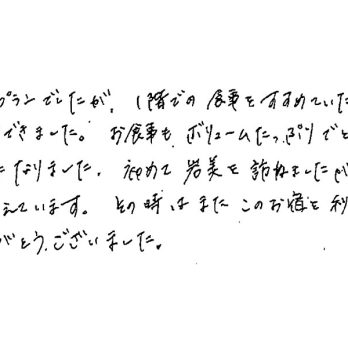 プランでしたが、1階での食事をすすめていた
できました。お食事も、ボリュームたっぷりでと
になりました。初めて岩美を訪ねましたが
えています。その時はまたこのお宿を利
がとうございました。